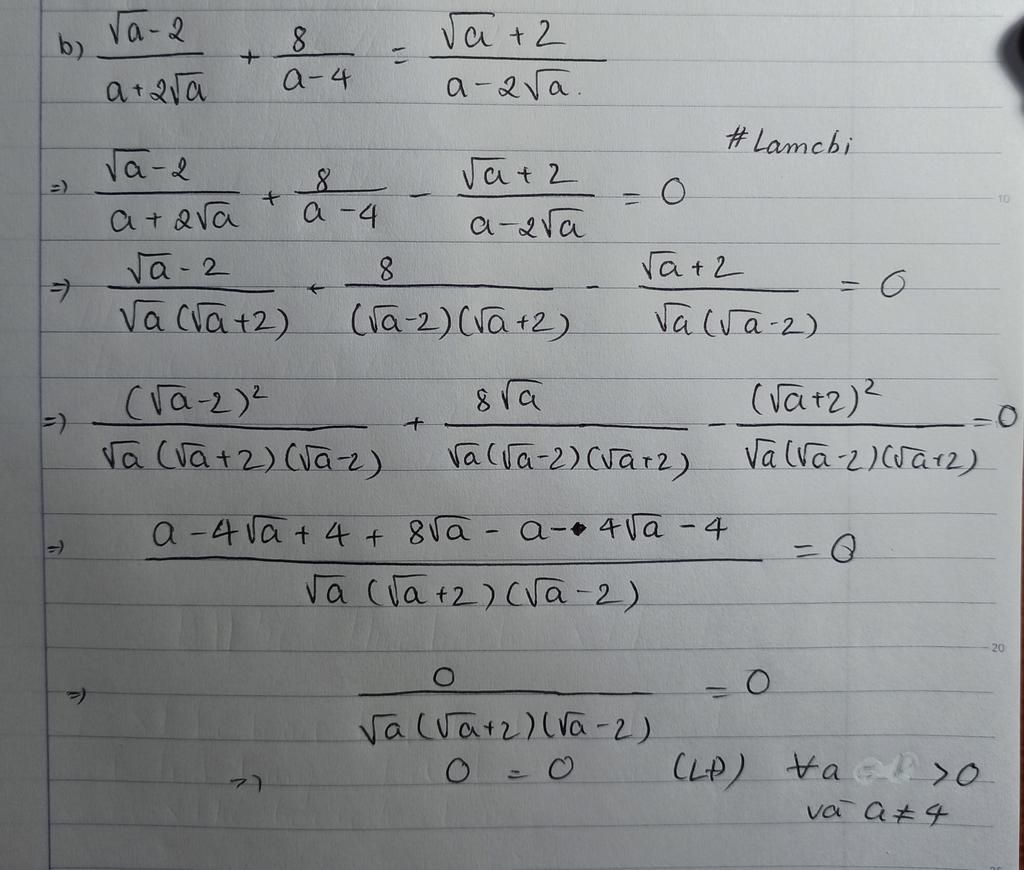 b) (√a - 2)/(a + 2√a) + 8/(a - 4) = (√a + 2)/(a - 2√a).
#Lamcbi
=) (√a - 2)/(a + 2√a) + 8/(a - 4) - (√a + 2)/(a - 2√a) = 0
=) (√a - 2)/(√a (√a + 2)) + 8/((√a - 2)(√a + 2)) - (√a + 2)/(√a (√a - 2)) = 0
=) (√a - 2)²/(√a (√a + 2)(√a - 2)) + 8√a/(√a (√a - 2)(√a + 2)) - (√a + 2)²/(√a (√a - 2)(√a + 2)) = 0
=) (a - 4√a + 4 + 8√a - a - 4√a - 4)/(√a (√a + 2)(√a - 2)) = 0
=) 0/(√a (√a + 2)(√a - 2)) = 0
=) 0 = 0 (LĐ) ∀a > 0
và a ≠ 4
10
20